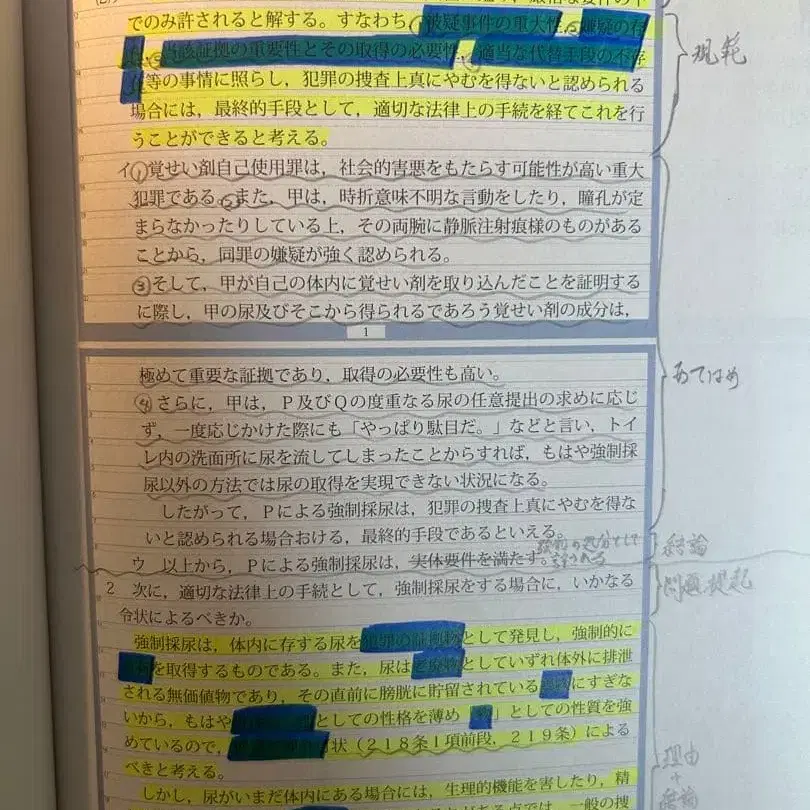 でのみ許されると解する。すなわち,①被疑事件の重大性,②嫌疑の存
③当該証拠の重要性とその取得の必要性,④適当な代替手段の不存
等の事情に照らし,犯罪の捜査上真にやむを得ないと認められる
場合には,最終的手段として,適切な法律上の手続を経てこれを行
うことができると考える。
規範
イ①覚せい剤自己使用罪は,社会的害悪をもたらす可能性が高い重大
犯罪である。②また,甲は,時折意味不明な言動をしたり,瞳孔が定
まらなかったりしている上,その両腕に静脈注射痕様のものがある
ことから,同罪の嫌疑が強く認められる。
③そして,甲が自己の体内に覚せい剤を取り込んだことを証明する
に際し,甲の尿及びそこから得られるであろう覚せい剤の成分は,
1
極めて重要な証拠であり,取得の必要性も高い。
あてはめ
④さらに,甲は,P及びQの度重なる尿の任意提出の求めに応じ
ず,一度応じかけた際にも「やっぱり駄目だ。」などと言い,トイ
レ内の洗面所に尿を流してしまったことからすれば,もはや強制採
尿以外の方法では尿の取得を実現できない状況になる。
したがって,Pによる強制採尿は,犯罪の捜査上真にやむを得な
いと認められる場合おける,最終的手段であるといえる。
ウ 以上から,Pによる強制採尿は,実体要件を満たす。
結論
2 次に,適切な法律上の手続として,強制採尿をする場合に,いかなる
問題提起
令状によるべきか。
強制採尿は,体内に存する尿を犯罪の証拠物として発見し,強制的に
を取得するものである。また,尿は老廃物としていずれ体外に排泄
される無価値物であり,その直前に膀胱に貯留されている にすぎな
いから,もはや としての性格を薄め「 」としての性質を強
めているので, 状(218条1項前段,219条)による
べきと考える。
理由
+
結論
しかし,尿がいまだ体内にある場合には,生理的機能を害したり,精